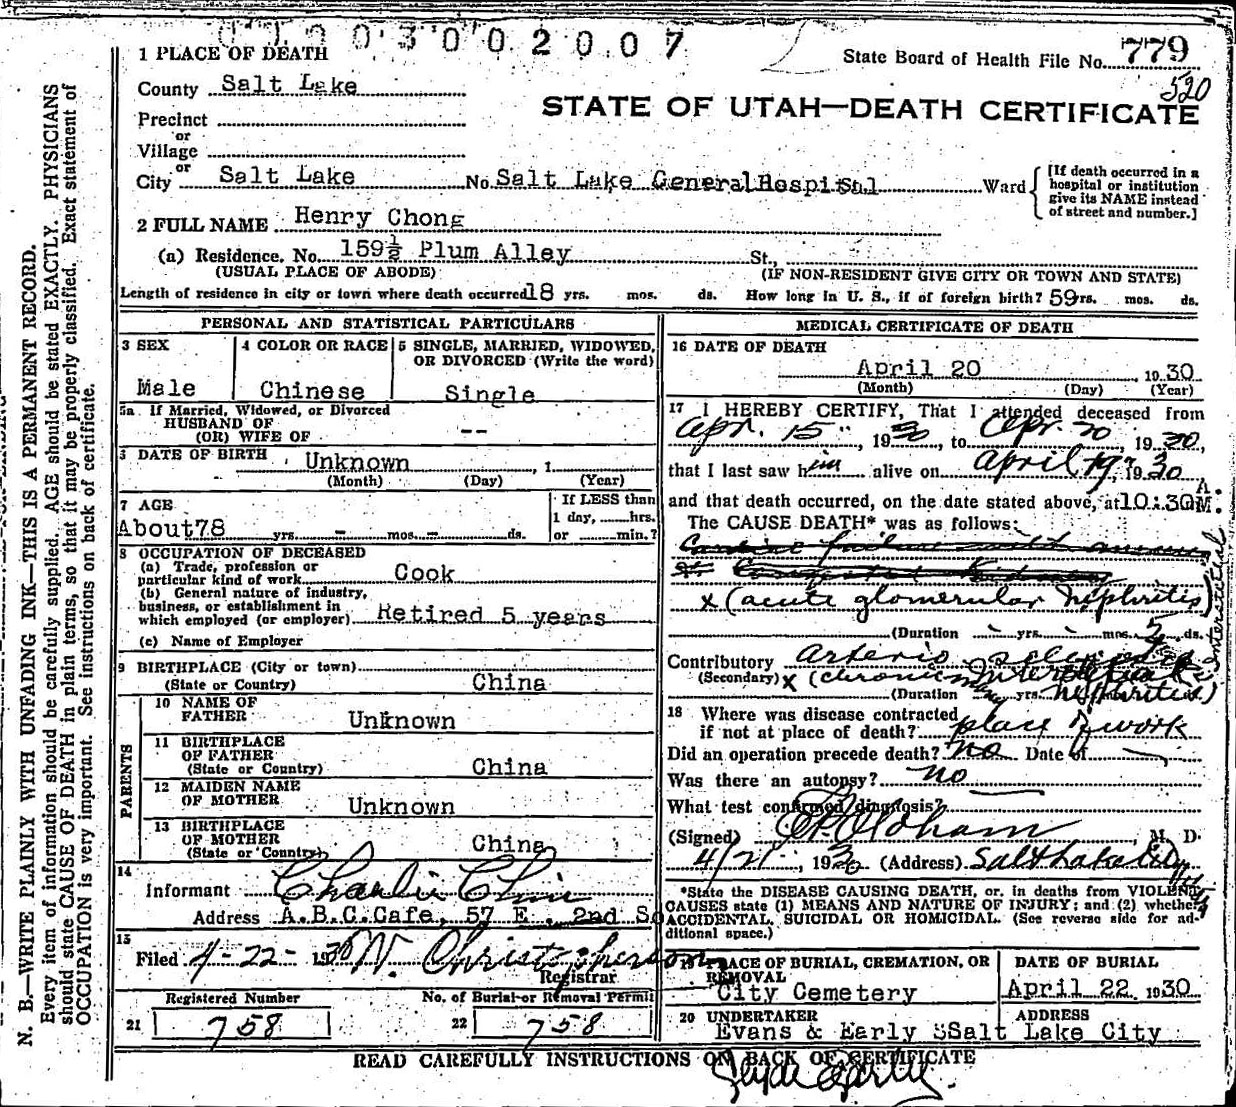 003002007
1 PLACE OF DEATH
State Board of Health File No. 779
520
County Salt Lake
STATE OF UTAH—DEATH CERTIFICATE
Precinct
or
Village
or
City Salt Lake No. Salt Lake General Hospital Ward
[If death occurred in a hospital or institution give its NAME instead of street and number.]
2 FULL NAME Henry Chong
(a) Residence. No. 159½ Plum Alley St.,
(USUAL PLACE OF ABODE) (IF NON-RESIDENT GIVE CITY OR TOWN AND STATE)
Length of residence in city or town where death occurred 18 yrs. mos. ds. How long in U. S., if of foreign birth? 59 rs. mos. ds.
PERSONAL AND STATISTICAL PARTICULARS
3 SEX
Male
4 COLOR OR RACE
Chinese
5 SINGLE, MARRIED, WIDOWED,
OR DIVORCED (Write the word)
Single
5a If Married, Widowed, or Divorced
HUSBAND OF
(OR) WIFE OF --
6 DATE OF BIRTH Unknown , 1
(Month) (Day) (Year)
7 AGE
About 78 yrs. - mos. - ds.
If LESS than
1 day, hrs.
or min.?
8 OCCUPATION OF DECEASED
(a) Trade, profession or
particular kind of work Cook
(b) General nature of industry,
business, or establishment in
which employed (or employer) Retired 5 years
(c) Name of Employer
9 BIRTHPLACE (City or town)
(State or Country) China
PARENTS
10 NAME OF
FATHER Unknown
11 BIRTHPLACE
OF FATHER
(State or Country) China
12 MAIDEN NAME
OF MOTHER Unknown
13 BIRTHPLACE
OF MOTHER
(State or Country) China
14
Informant Charlie Chin
Address A.B.C.Cafe, 57 E. 2nd So
15
Filed 4-22- 1930 W. Christopherson
Registrar
Registered Number
21 758
No. of Burial or Removal Permit
22 758
MEDICAL CERTIFICATE OF DEATH
16 DATE OF DEATH
April 20 , 1930
(Month) (Day) (Year)
17 I HEREBY CERTIFY, That I attended deceased from
Apr. 15", 1930, to Apr. 20, 1930,
that I last saw him alive on April 19, 1930
and that death occurred, on the date stated above, at 10:30 A M.
The CAUSE DEATH* was as follows:
x (acute glomerular Nephritis)
interstitial
(Duration yrs. mos. 5 ds.
Contributory Arterio sclerosis
(Secondary) x (chronic interstitial
(Duration yrs. nephritis)
18 Where was disease contracted
if not at place of death? place of work
Did an operation precede death? no Date of
Was there an autopsy? no
What test confirmed diagnosis?
(Signed) Oldham, M. D.
4/21, 1930 (Address) Salt Lake City
*State the DISEASE CAUSING DEATH, or, in deaths from VIOLENT
CAUSES state (1) MEANS AND NATURE OF INJURY; and (2) whether
ACCIDENTAL, SUICIDAL OR HOMICIDAL. (See reverse side for additional space.)
19 PLACE OF BURIAL, CREMATION, OR
REMOVAL
City Cemetery
DATE OF BURIAL
April 22 1930
20 UNDERTAKER ADDRESS
Evans & Early SSalt Lake City
READ CAREFULLY INSTRUCTIONS ON BACK OF CERTIFICATE
Clyde Early
N. B.—WRITE PLAINLY WITH UNFADING INK—THIS IS A PERMANENT RECORD.
Every item of information should be carefully supplied. AGE should be stated EXACTLY. PHYSICIANS
should state CAUSE OF DEATH in plain terms, so that it may be properly classified. Exact statement of
OCCUPATION is very important. See instructions on back of certificate.